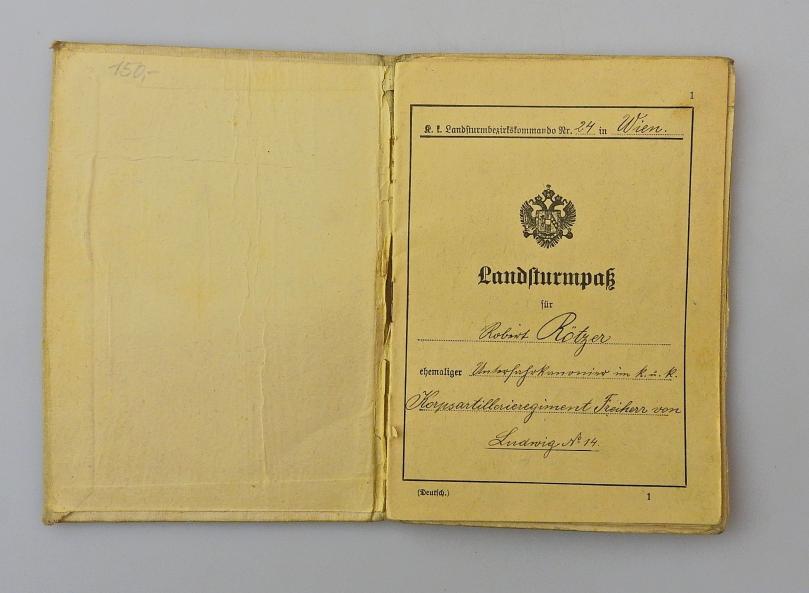 150,-
1
K. k. Landsturmbezirkskommando Nr. 24 in Wien.
Landsturmpaß
für
Robert Rötzer
ehemaliger Unterfahrkanonier im k. u. k.
Korpsartillerieregiment Freiherr von
Ludwig № 14.
(Deutsch.)
1